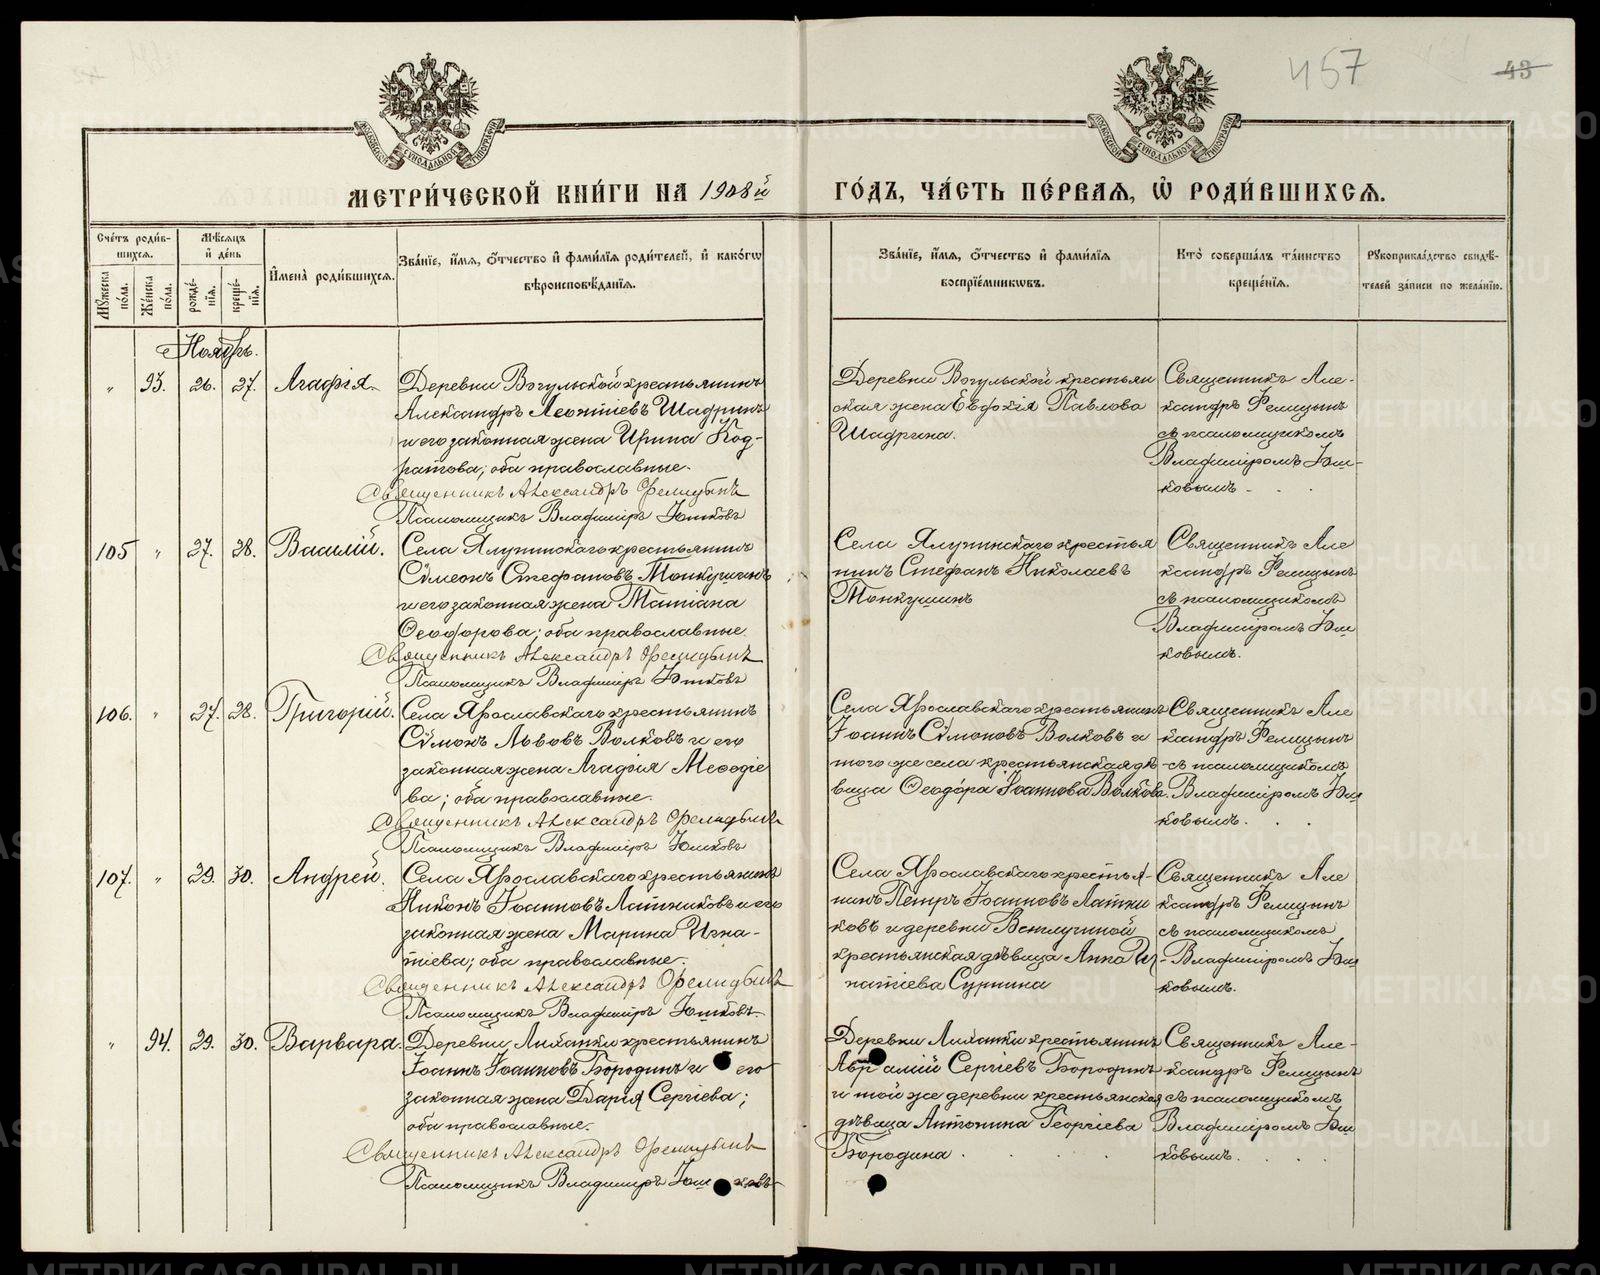 457
43
МЕТРИ́ЧЕСКОЙ КНИ́ГИ НА 1908й ГО́ДЪ, ЧА́СТЬ ПЕ́РВАЯ, Ѡ РОДИ́ВШИХСЯ.
Сче́тъ роди́вшихся.
Му́жеска по́ла.
Же́нска по́ла.
Мѣ́сяцъ и де́нь
рожде́нїя.
креще́нїя.
И҆мена̀ роди́вшихся.
Зва́нїе, и҆́мя, ѻ҆́тчество и҆ фами́лїя роди́телей, и҆ како́гѡ
вѣроисповѣ́данїя.
Зва́нїе, и҆́мя, ѻ҆́тчество и҆ фами́лїя
воспрїе́мникѡвъ.
Кто̀ соверша́лъ та́инство
креще́нїя.
Рукоприкла́дство свидѣ́-
телей за́писи по жела́нїю.
Ноябрь.
" 93. 26. 27. Агафія.
Деревни Вогульской крестьянинъ
Александръ Леонтіевъ Шадринъ
и его законная жена Ирина Код-
ратова; оба православные.
Священникъ Александръ
Псаломщикъ Владиміръ Юшковъ
Деревни Вогульской крестьян
ская жена Евдокія Павлова
Шадрина.
Священникъ Але-
ксандръ
съ псаломщикомъ
Владиміромъ Юш-
ковымъ.
105 " 27. 28. Василій.
Села крестьянинъ
Сѵмеонъ Стефановъ
и его законная жена Татіана
Ѳеодорова; оба православные.
Священникъ Александръ
Псаломщикъ Владиміръ Юшковъ
Села крестья
нинъ Стефанъ Николаевъ
Священникъ Але
ксандръ
съ псаломщикомъ
Владиміромъ Юш
ковымъ.
106. " 27. 28. Григорій.
Села Ярославскаго крестьянинъ
Сѵмонъ Львовъ Волковъ и его
законная жена Агафія Меѳодіе
ва; оба православные.
Священникъ Александръ
Псаломщикъ Владиміръ Юшковъ
Села Ярославскаго крестьянинъ
Іоаннъ Сѵмоновъ Волковъ и
того же села крестьянская дѣ-
вица Ѳеодора Іоаннова Волкова.
Священникъ Але
ксандръ
съ псаломщикомъ
Владиміромъ Юш
ковымъ.
107. " 29. 30. Андрей.
Села Ярославскаго крестьянинъ
Никонъ Іоанновъ Латниковъ и его
законная жена Марина Игна-
тіева; оба православные.
Священникъ Александръ
Псаломщикъ Владиміръ Юшковъ
Села Ярославскаго крестья-
нинъ Петръ Іоанновъ Латни
ковъ и деревни
крестьянская дѣвица Анна И-
патіева Сурнина
Священникъ Але
ксандръ
съ псаломщикомъ
Владиміромъ Юш
ковымъ.
" 94. 29. 30. Варвара.
Деревни крестьянинъ
Іоаннъ Іоанновъ Бородинъ и его
законная жена Дарія Сергіева;
оба православные.
Священникъ Александръ
Псаломщикъ Владиміръ Юшковъ
Деревни крестьянинъ
Сергіевъ Бородинъ
и той же деревни крестьянская
дѣвица Антонина Георгіева
Бородина
Священникъ Але-
ксандръ
съ псаломщикомъ
Владиміромъ Юш
ковымъ.
METRIKI.GASO-URAL.RU